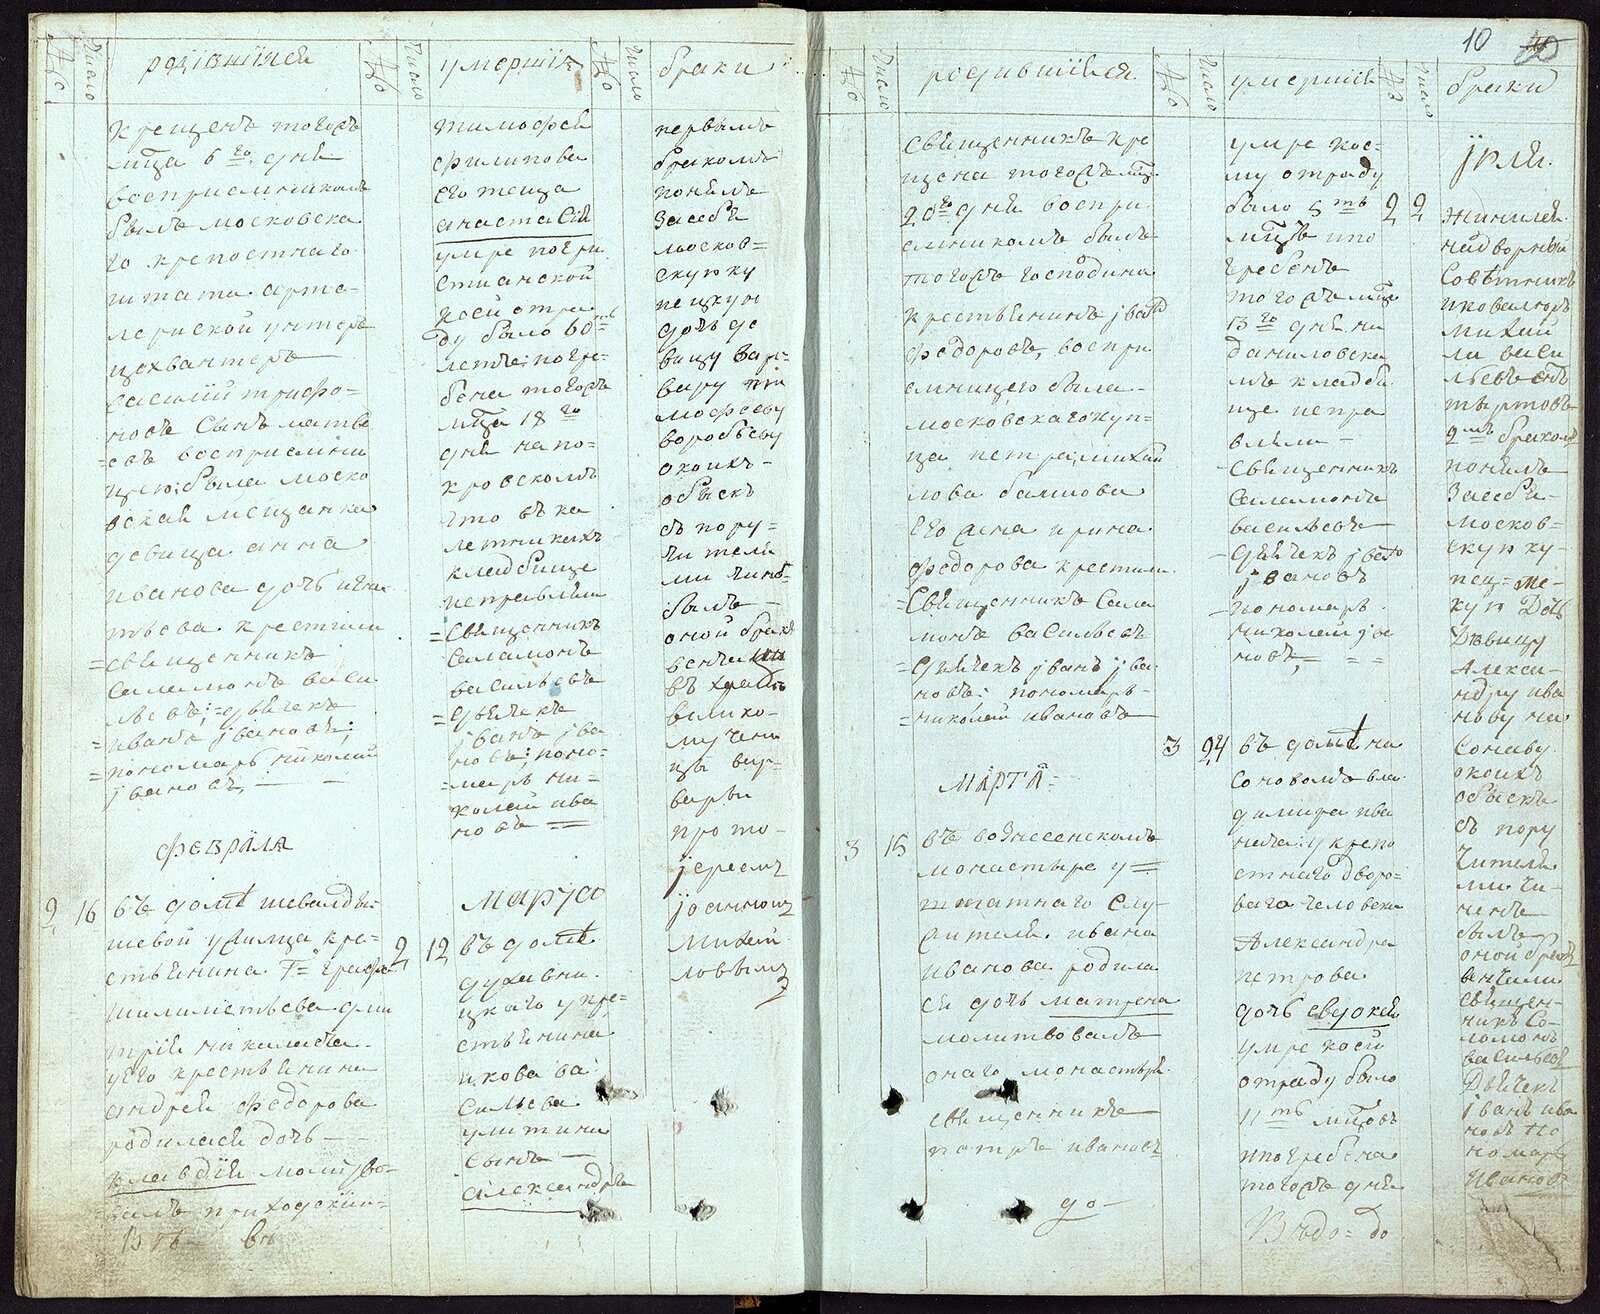 №
число
родившїися
№
число
умершїя
№
число
браки
крещенъ тогожъ
мц҃а 6го дня
восприемникомъ
былъ московска
го крепостнаго
штата арти-
лериской унтеръ
цехвантеръ
василий трифо=
новъ сынъ матве
=евъ восприемни
цею: была моско
вская мещанка
девица анна
иванова дочь игна
тьева крестили
=священникъ
саламонъ васи
льевъ; =дьячекъ
=иванъ јвановъ;
=пономарь николай
јвановъ; —
ФЕВРАЛЯ
2 16 въ доме шевалды-
шевой улица кре=
стьянина г= графа
шилиметьева дми
трия николаева
уего крестьянина
андрея федорова
родиласъ дочь —
клавдия молитво-
валъ приходский=
тимофея
филипова
его теща
анастасия
умре почри
стианской
коей отро
ду было 60ть
летъ: погре=
бена тогожъ
мц҃а 18го
дня на по=
кровскомъ
что въ ка
летникахъ
кладбище
исправляли
=священникъ
саламонъ
васильевъ
=дьячекъ
јванъ јва
новъ; поно=
=марь ни=
колай ива
новъ ==
Марта
2 12 въ доме
духавни
цкаго у кре=
стьянина
якова ва
сильева
улитини
сынъ —
александръ
первымъ
бракомъ
понялъ
засебя
москов=
скую ку
пецкую
дочь де
вицу вар-
вару ти
мофееву
воробьеву
окоихъ -
обыскъ
съ пору=
чители
ми чинѣ-
былъ —
оной бракъ
венчали
въ храмѣ
велико-
мучени
цы вар-
вары
прото-
јереемъ
јоанномъ
михай
ловымъ
10
№
число
родившїися
№
число
умершїя
№
число
браки
священникъ кре
щена тогожъ мц҃а
20го дня воспри
емникомъ былъ
тогожъ господина
крестьянинъ јванъ
федоровъ, воспри
емницею была -
московскаго куп=
ца петра михай
лова башлова
его жена ирина
федорова крестили
=священникъ сала
монъ васильевъ
=дьячекъ јванъ јва
новъ: пономарь-
=николай ивановъ
МАРТА=
3 15 въ вознесенскомъ
монастыре у=
штатнаго слу-
жителя ивана
иванова родила
ся дочь матрена
молитвовалъ
онаго монастыря
священникъ
петръ ивановъ
до-
умре кое=
му отроду
было 5ть
мц҃въ ипо
гребенъ
тогожъ мц҃а
13го дня на
даниловско
мъ кладби
ще испра
вляли -
-священникъ
саламонъ
васильевъ
-дьячекъ јванъ
јвановъ
-пономарь
николай јва
новъ, = = =
3 24 въ доме на
соновомъ вла
димира ива
нича у крепо
стнаго дворо=
ваго человека
александра
петрова
дочь евдокея
умре коей
отраду было
11ть мц҃овъ
ипогребена
тогожъ дня
Въдо= до
јюля.
2 2 жинился
надворный
советникъ
никовалеръ
михай
ла васи
льевъ сынъ
тыртовъ
2мъ бракомъ
понялъ
засебя -
москов=
скую ку-
пец= ме-
кую дочь
девицу
алекса-
ндру ива
нову на
сонову
окоихъ
обыскъ
съ пору
чителя
ми чи-
ненъ
былъ
оной бракъ
венчали
священ-
никъ со-
ломонъ
васильевъ
дьячекъ
јванъ ива
новъ по
номарь
ивановъ